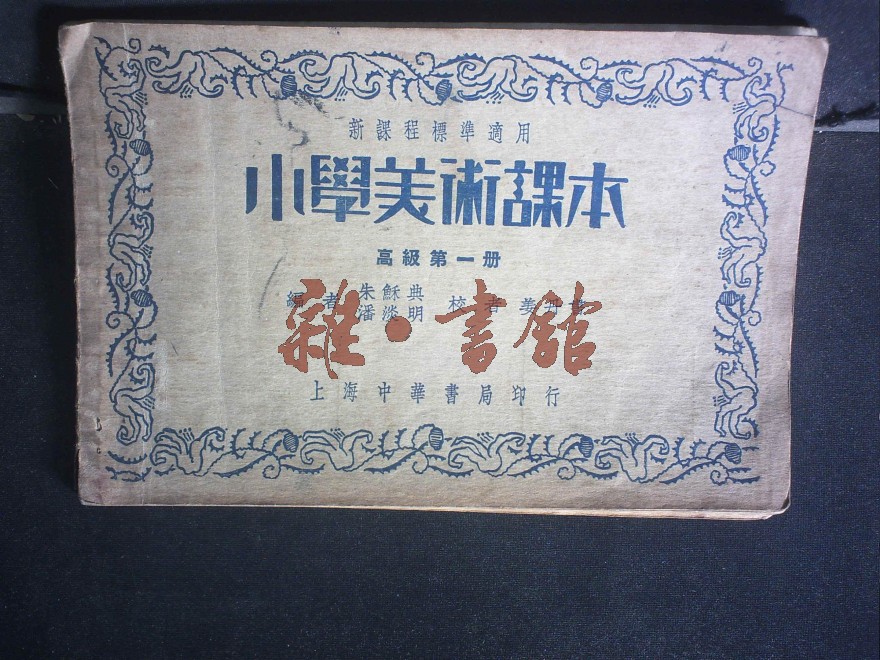 新課程標準適用
小學美術課本
高級第一册
編者 朱穌典 潘淡明 校者 姜丹書
雜·書館
上海中華書局印行